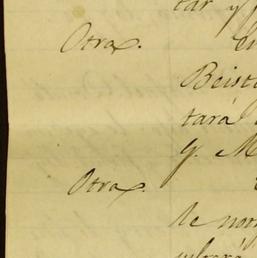 tar y
Otra.
Beist
tará
y. M
Otra.
le nom